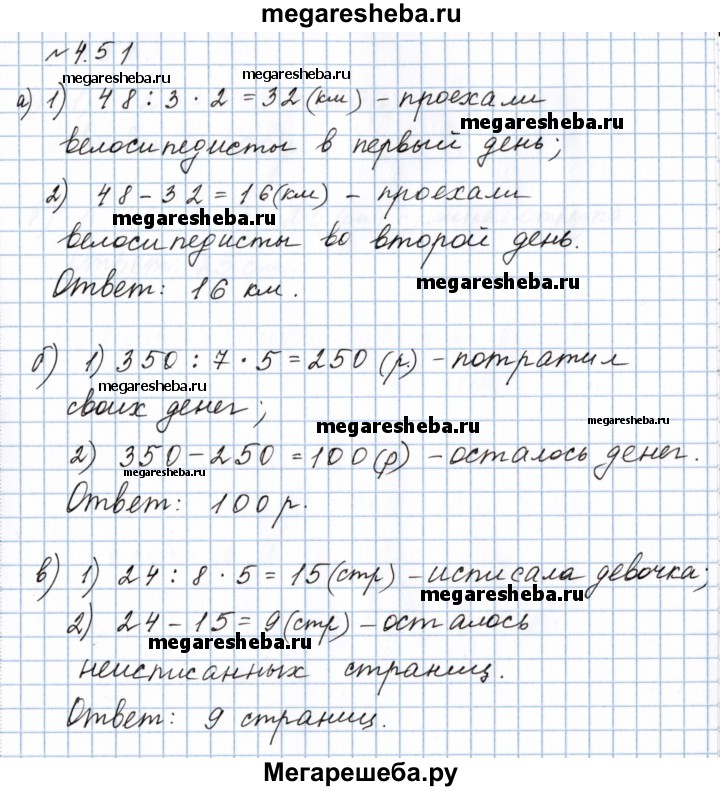 megaresheba.ru
№ 4.51
megaresheba.ru megaresheba.ru
а) 1) 48 : 3 · 2 = 32 (км) – проехали
megaresheba.ru
велосипедисты в первый день;
2) 48 – 32 = 16 (км) – проехали
megaresheba.ru
велосипедисты во второй день.
Ответ: 16 км.
megaresheba.ru
б) 1) 350 : 7 · 5 = 250 (р.) – потратил
megaresheba.ru
своих денег;
megaresheba.ru megaresheba.ru
2) 350 – 250 = 100 (р) – осталось денег.
megaresheba.ru
Ответ: 100 р.
в) 1) 24 : 8 · 5 = 15 (стр) – исписала девочка;
megaresheba.ru
2) 24 – 15 = 9 (стр) – осталось
megaresheba.ru
неисписанных страниц.
Ответ: 9 страниц.
Мегарешеба.ру